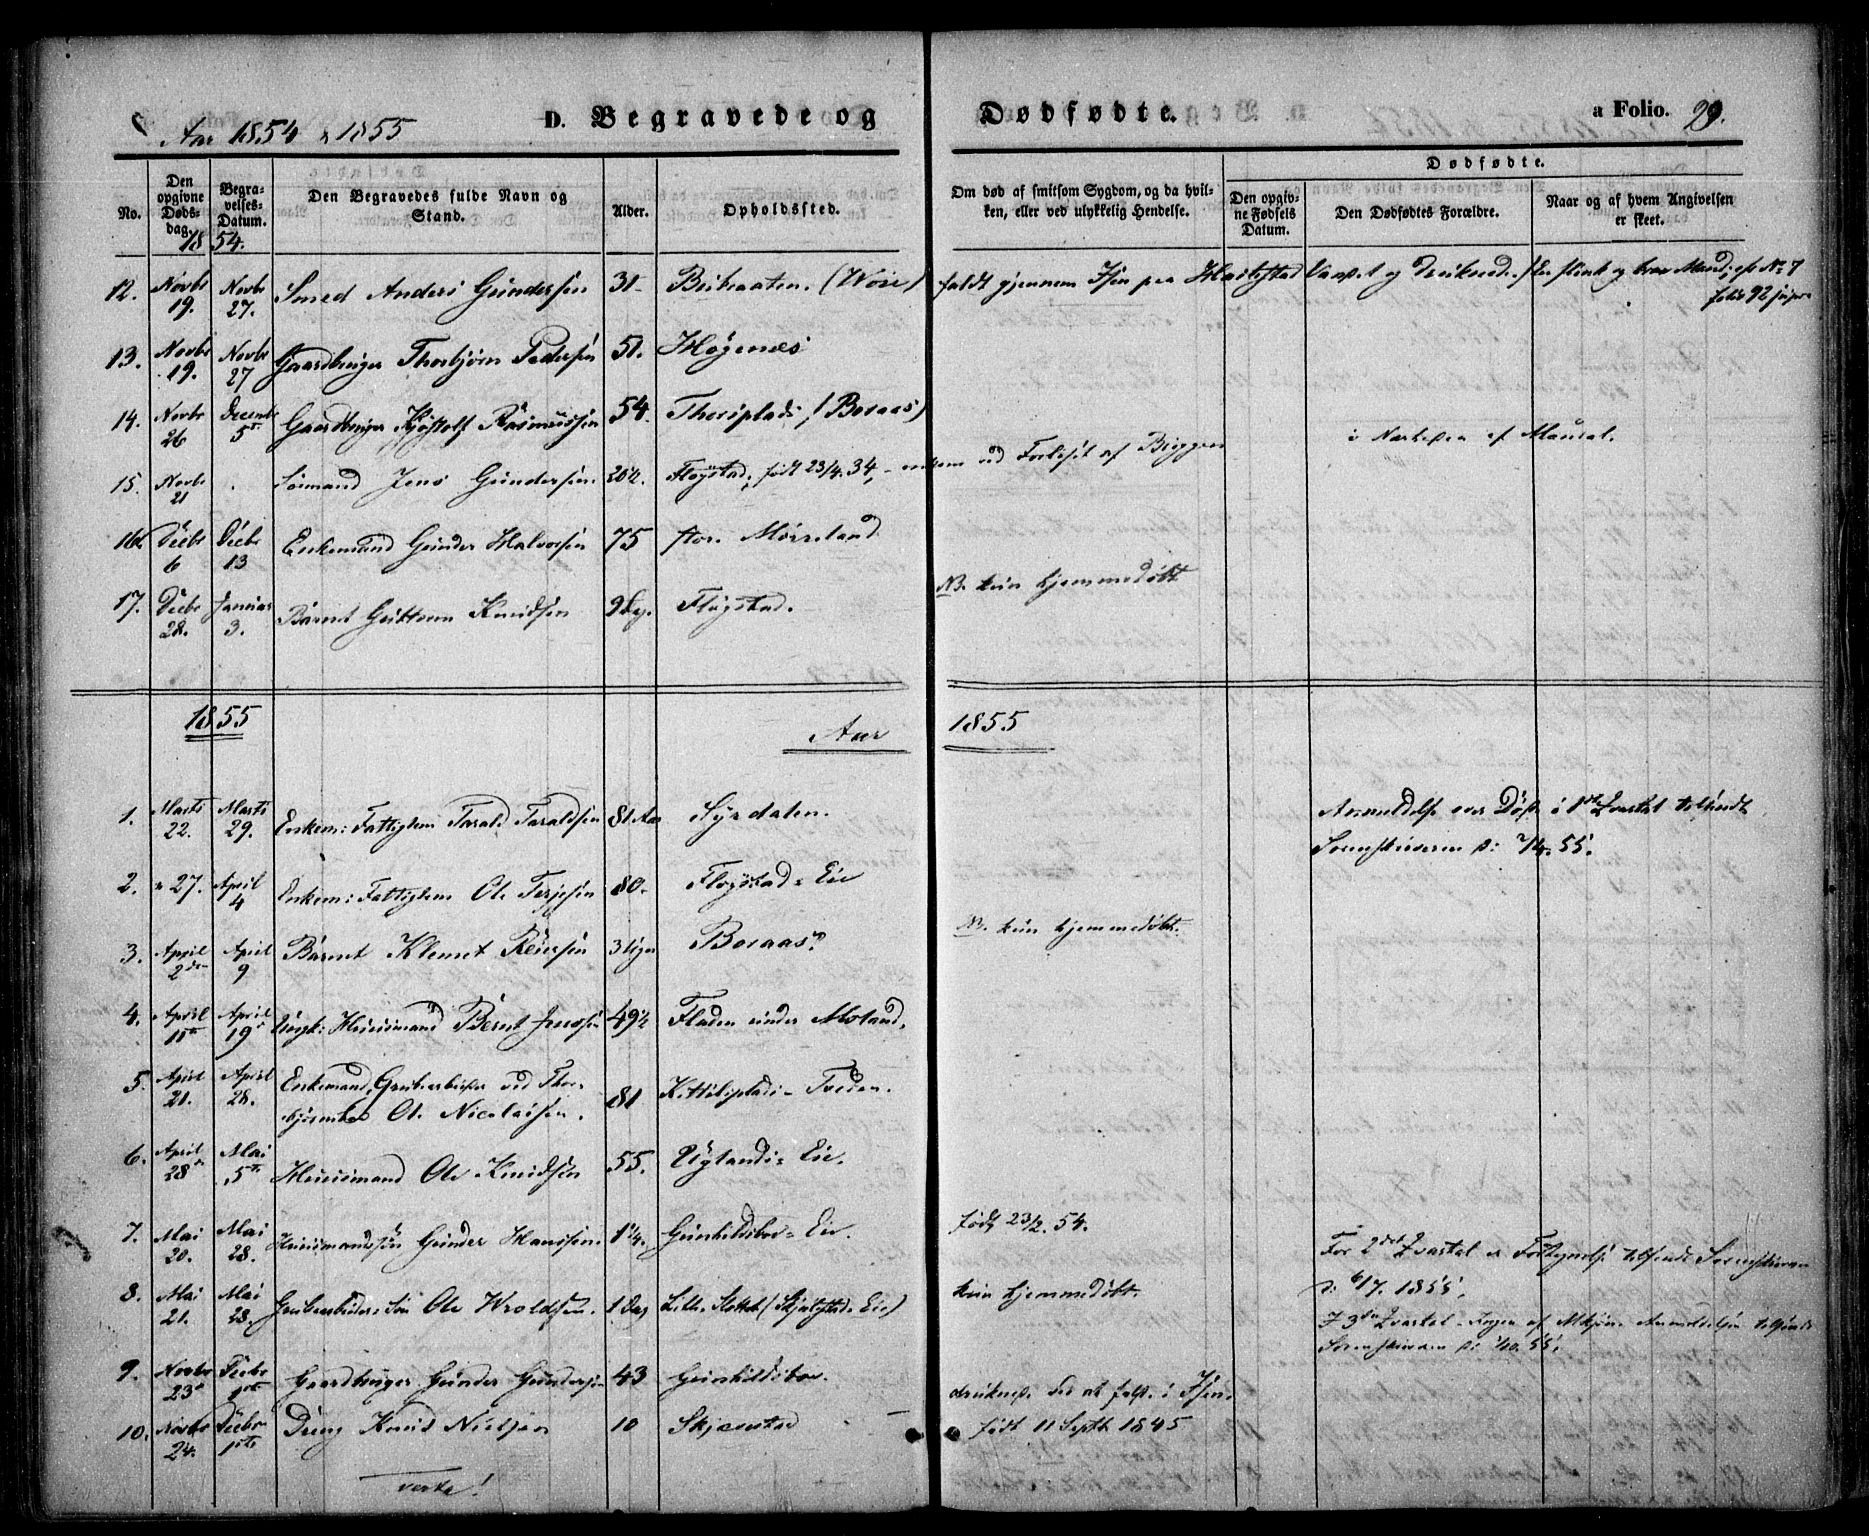 Aar 1854 & 1855 D. Begravede og Dødfødte. a Folio. 99.
No. Den opgivne Døds-dag. Begra-velses-Datum. Den Begravedes fulde Navn og Stand. Alder. Opholdssted. Om død af smitsom Sygdom, og da hvil-ken, eller ved ulykkelig Hendelse. Dødfødte.
Den opgiv-ne Fødsels Datum. Den Dødfødtes Forældre. Naar og af hvem Angivelsen er skeet.
1854.
12. Novbr 19. Novbr 27. Smed Anders Gundersen 31 (Woie) faldt gjennem Isen paa Vandet og druknede. En flink og brav Mand; No 7
folio 92
13. Novbr 19. Novbr 27 Gaardbruger Thorbjørn Pedersen 51. Høgenæs
14. Novbr 26 Decembr 5te Gaardbruger Rasmussen 54. Thorsplads (Boraas)
15. Novbr 21 . Sømand Jens Gundersen. 20½. Fløystad, født 23/4. 34, omkom ved Forliset af Briggen i Nærheden af Mandal.
16. Decbr 6 Decbr 13 Enkemand Gunder Halvorsen 75 store Mørreland
17. Decbr 28. Januar 3. Barnet Guttorm Knudsen 9 Dg. Fløystad. NB. kun hjemmedøbt
1855 Aar 1855
1. Marts 22. Marts 29. Enkem: Fattiglem Tarald Taraldsen 81 Aar Syrdalen. Anmeldelse over Døde i 1ste Qvartal tilsendt
Sorenskriveren d: 2/4. 55.
2. " 27. April 4 Enkem: Fattiglem Ole Terjesen 80. Fløystad Eie
3. April 2den April 9 Barnet Klemet 3 Uger Boraas. NB. kun hjemmedøbt.
4. April 11te April 19 Ungk: Huusmand Bernt Jenssen 49½ Fladen under Moland.
5. April 21. April 28. Enkemand, Grubearbeider ved Thor-
bjørnsboe Ole Nicolaisen. 81 Kittilsplads Tveden.
6. April 28 Mai 5te Huusmand Ole Knudsen 55. Uglands Eie.
7. Mai 20. Mai 28. Huusmandssøn Gunder Hanssen. 1¼. Gunhildsboe Eie. født 23/2. 54.
For 2det Qvartal er tilsendt Sorenskriveren
d: 6/7. 1855.
8. Mai 21. Mai 28. Grubearbeiders Søn Ole Wroldsen. 1 Dag Lille (Skjelystad Eie) kun hjemmedøbt.
I 3die Qvartal Ingen Anmeldelsen tilsendt
Sorenskriveren d: 55.
9. Novbr 23 Decbr 1ste Gaardbruger Gunder Gundersen 43 Gunhildsboe. druknede ved at falde i Isen.
10. Novbr 24. Decbr 1ste Dreng Knud Nielsen 10 Skjærstad født 11 Septbr 1845
verte!